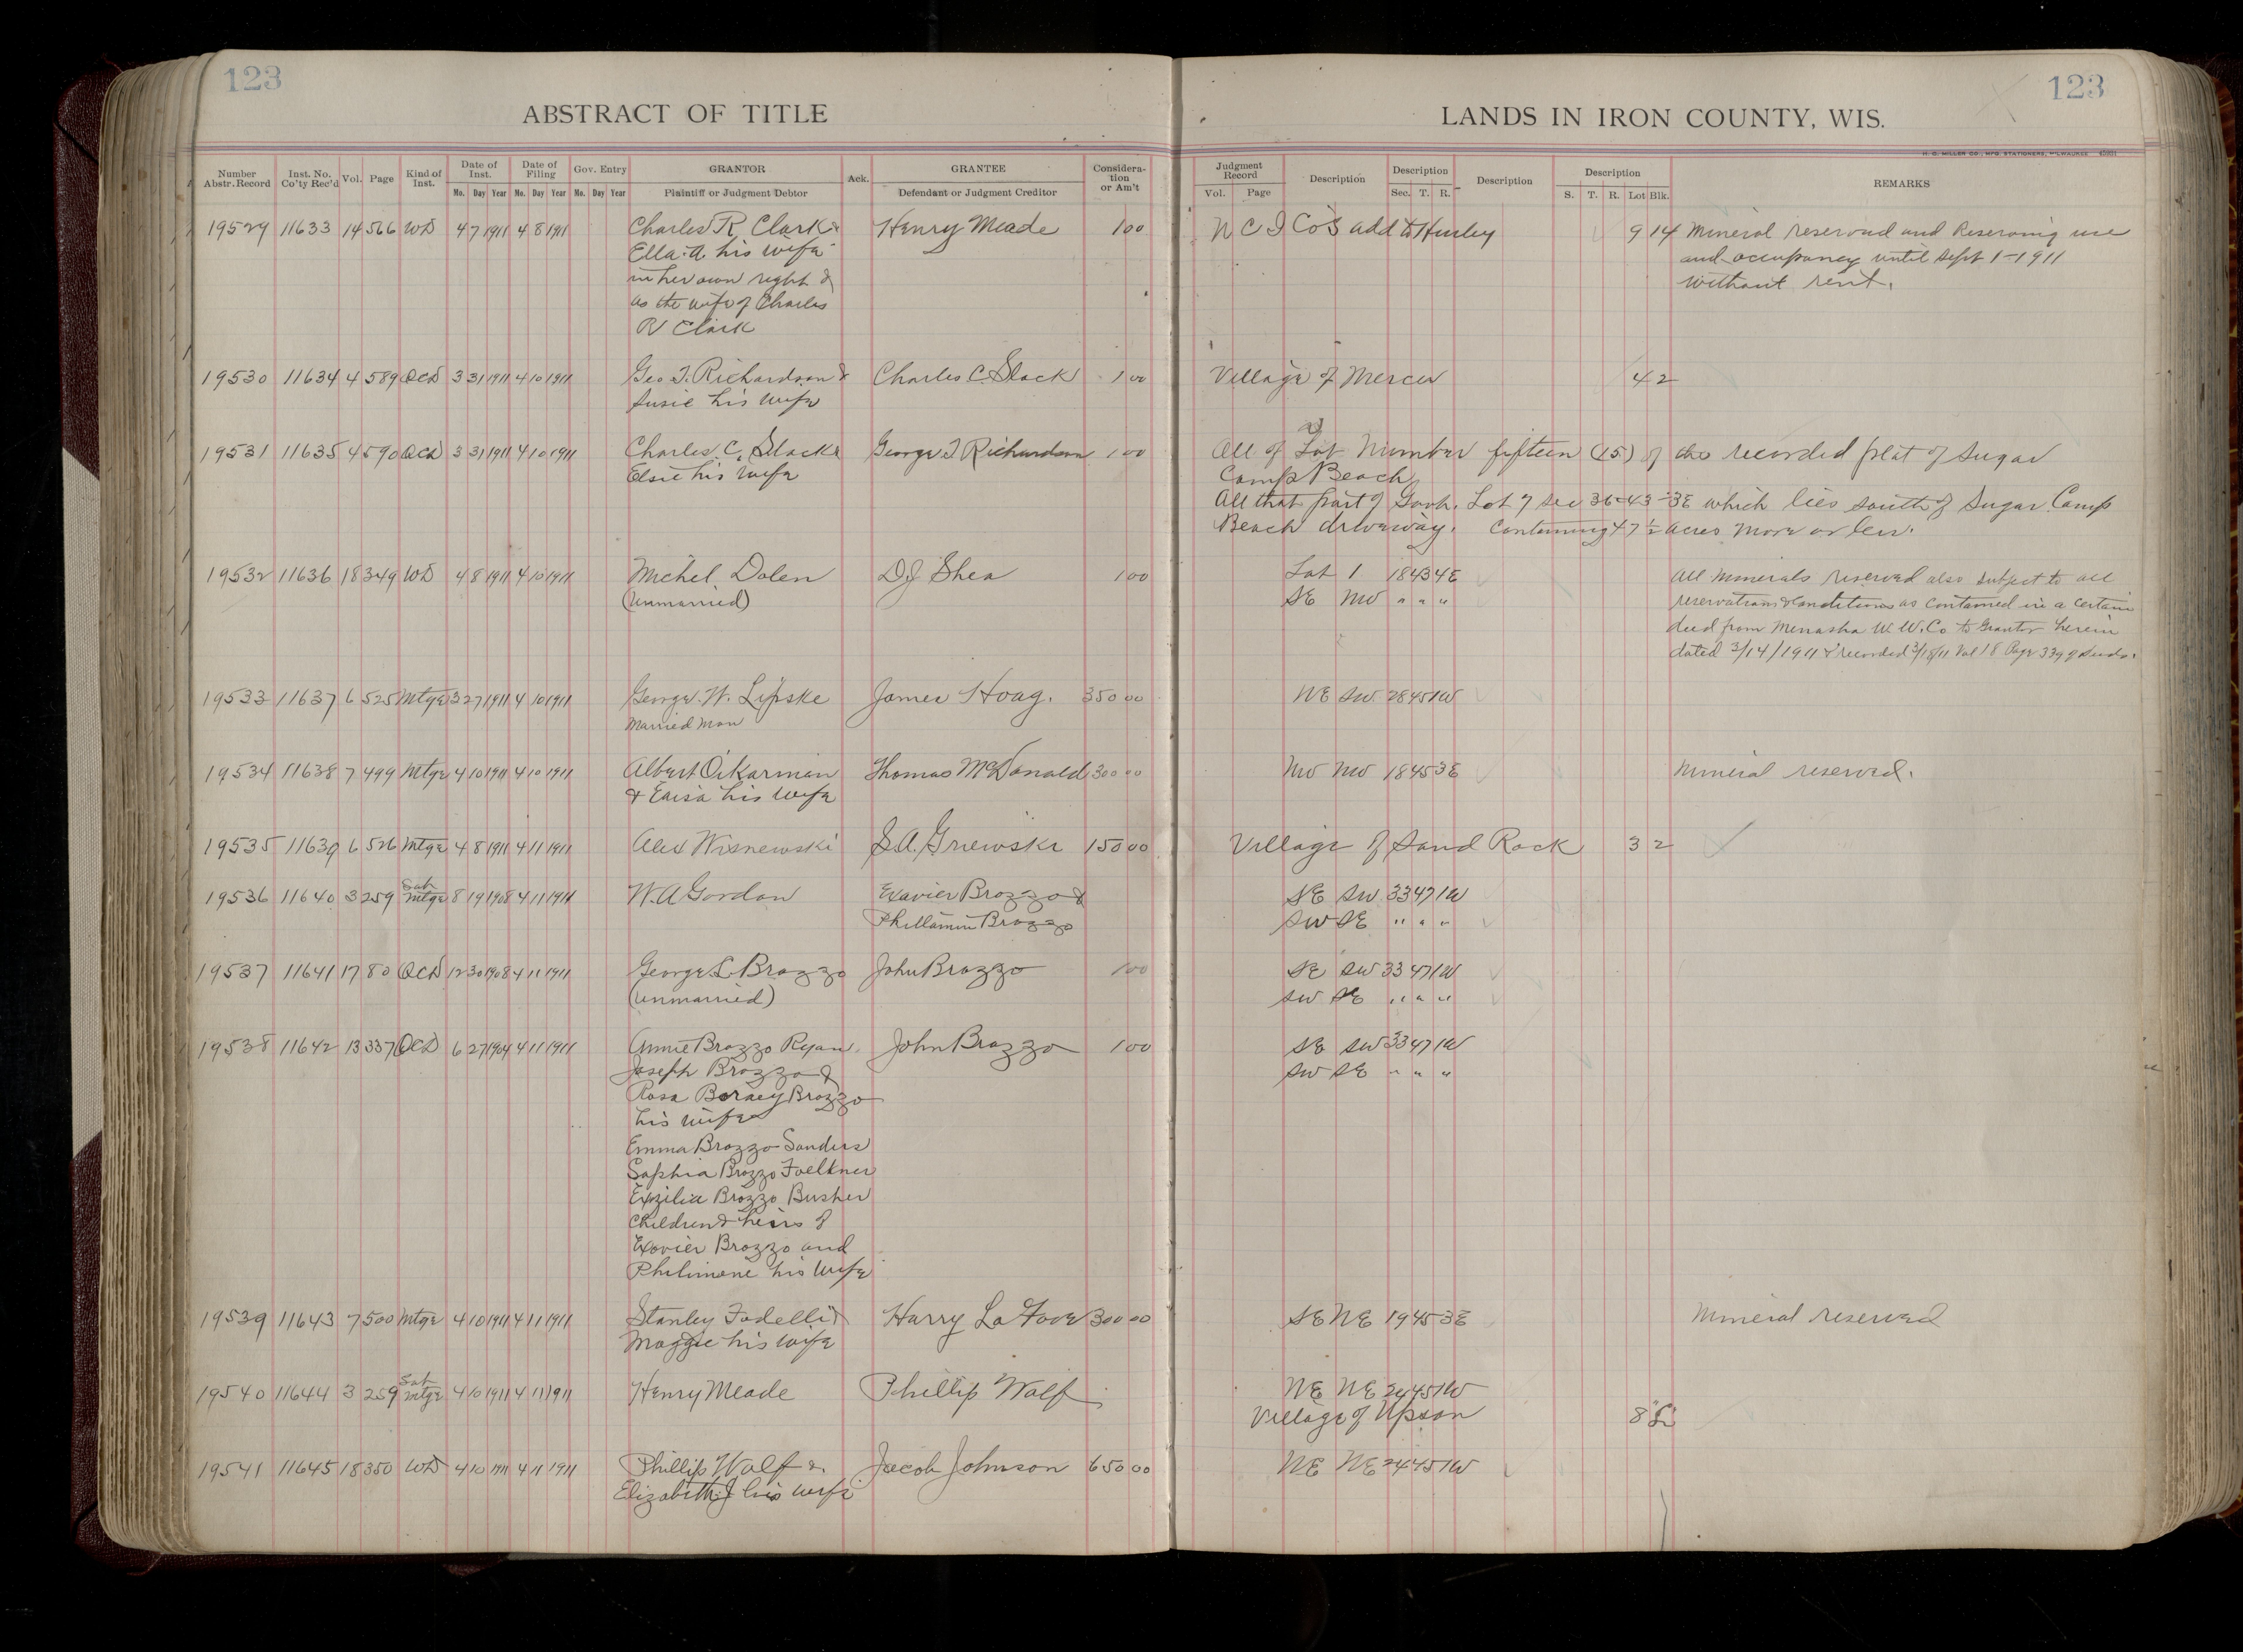 123
123
ABSTRACT OF TITLE
LANDS IN IRON COUNTY, WIS.
H. C. MILLER CO., MFG. STATIONERS, MILWAUKEE
Number Abstr. Record Inst. No. Co'ty Rec'd Vol. Page Kind of Inst. Date of Inst. Mo. Day Year Date of Filing Mo. Day Year Gov. Entry Mo. Day Year GRANTOR Plaintiff or Judgment Debtor Ack. GRANTEE Defendant or Judgment Creditor Considera-tion or Am't
Judgment Record Vol. Page Description Description Sec. T. R. Description Description S. T. R. Lot Blk. REMARKS
19529 11633 14 566 WD 4 7 1911 4 8 1911 Charles R. Clark & Henry Meade 1 00 N C I Co's add to Hurley 9 14 Mineral reserved and Reserving use
Ella A. his wife and occupancy until Sept 1-1911
in her own right & without rent.
as the wife of Charles
R Clark
19530 11634 4 589 QCD 3 31 1911 4 10 1911 Geo T. Richardson & Charles C. Slack 1 00 Village of Mercer 4 2
Susie his wife
19531 11635 4 590 QCD 3 31 1911 4 10 1911 Charles C. Slack & George T Richardson 1 00 All of Lot Number fifteen (15) of the recorded plat of Sugar
Elsie his wife Camp Beach
All that part of Govt. Lot 7 sec 36-43-3E which lies south of Sugar Camp
Beach driveway. Containing 47 1/2 acres more or less.
19532 11636 18 349 WD 4 8 1911 4 10 1911 Michel Dolen D.J. Shea 1 00 Lot 1 18 43 4E All minerals reserved also subject to all
(Unmarried) SE NW " " " reservations & conditions as contained in a certain
deed from Menasha W. W. Co to Grantor herein
dated 3/14/1911 & recorded 3/18/11 Vol 18 Page 339 of Deeds.
19533 11637 6 525 Mtge 3 27 1911 4 10 1911 George W. Lipske James Hoag. 350 00 NE SW 28 45 1W
Married Man
19534 11638 7 499 Mtge 4 10 1911 4 10 1911 Albert Oikarinan Thomas McDonald 300 00 NW NW 18 45 3E Mineral reserved.
& Eaisa his wife
19535 11639 6 526 Mtge 4 8 1911 4 11 1911 Alex Wisnewski S.A. Griewski 150 00 Village of Sand Rock 3 2
19536 11640 3 259 Sat Mtge 8 19 1908 4 11 1911 W. A Gordon Exavier Brozzo & SE SW 33 47 1W
Phillamin Brozzo SW SE " " "
19537 11641 17 80 QCD 12 30 1908 4 11 1911 George L Brozzo John Brozzo 1 00 SE SW 33 47 1W
(unmarried) SW SE " " "
19538 11642 13 337 QCD 6 27 1904 4 11 1911 Annie Brozzo Ryan, John Brozzo 1 00 SE SW 33 47 1W
Joseph Brozzo & SW SE " " "
Rosa Borney Brozzo
his wife
Emma Brozzo Sanders
Sophia Brozzo Faelkner
Exzilia Brozzo Busher
Children & heirs of
Exavier Brozzo and
Philimene his wife
19539 11643 7 500 Mtge 4 10 1911 4 11 1911 Stanley Fadelli & Harry La Fave 300 00 SE NE 19 45 3E Mineral reserved
Maggie his wife
19540 11644 3 259 Sat Mtge 4 10 1911 4 11 1911 Henry Meade Phillip Wolf NE NE 24 45 1W
Village of Upson 8 "L"
19541 11645 18 350 WD 4 10 1911 4 11 1911 Phillip Wolf & Jacob Johnson 650 00 NE NE 24 45 1W
Elizabeth J his wife